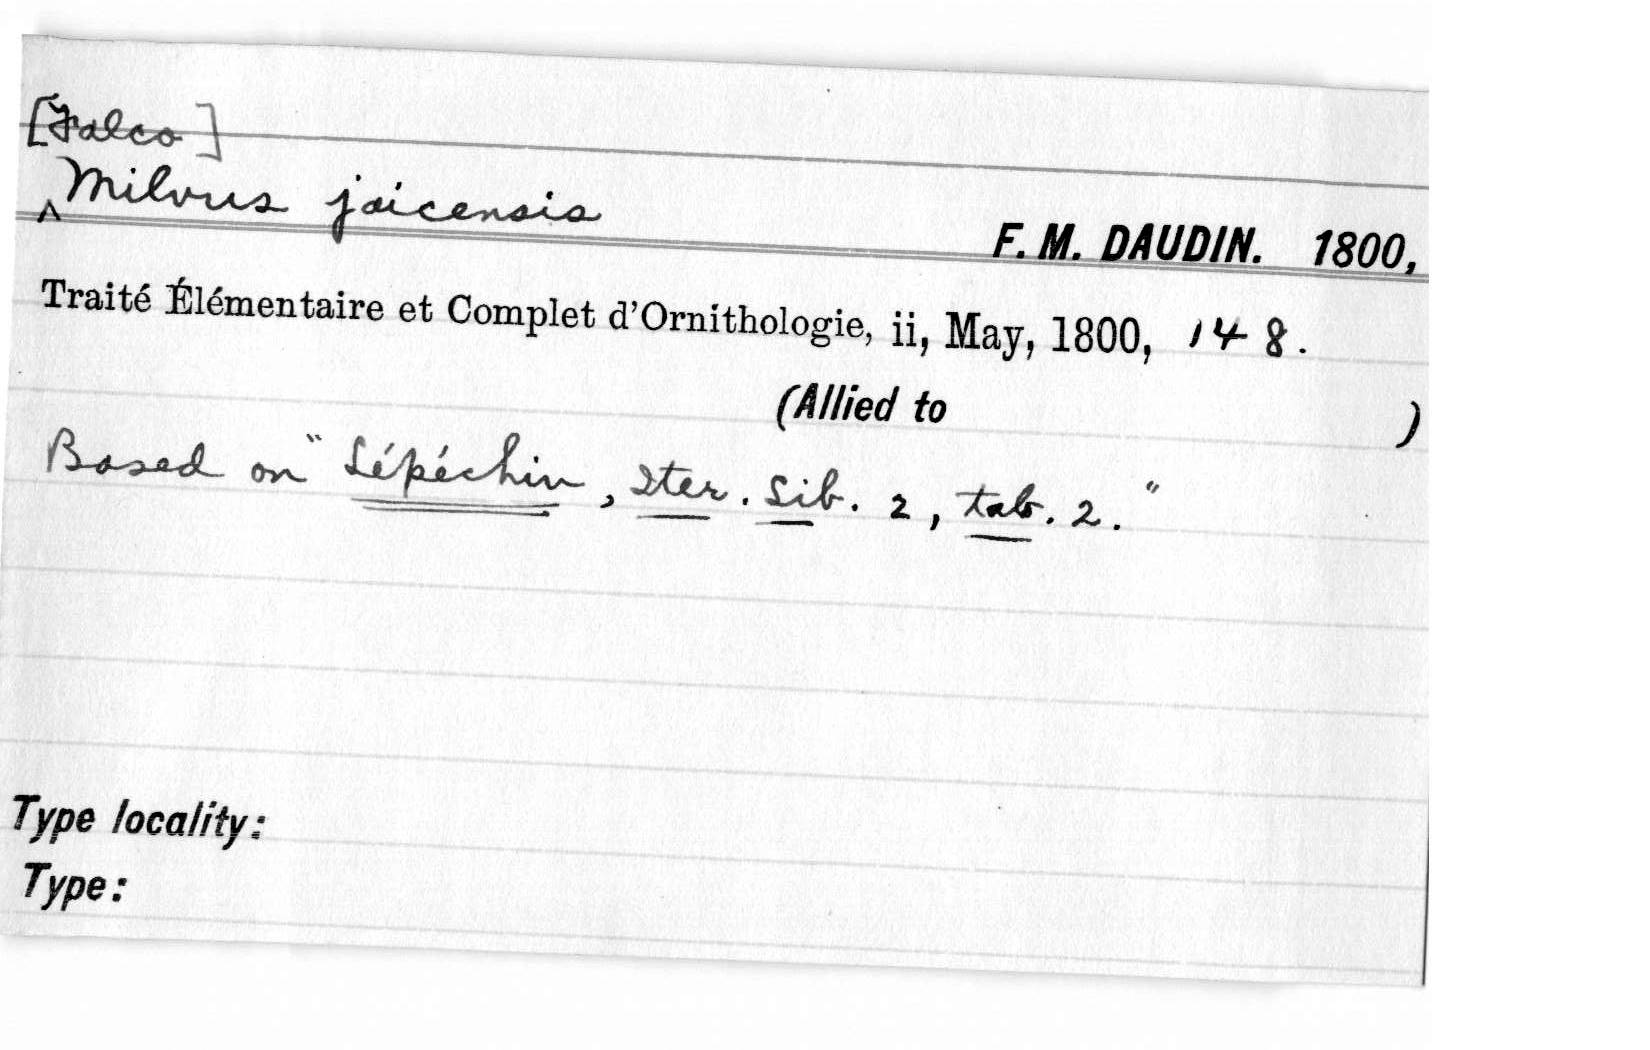 [Falco]
^Milvus jaicensis
F. M. DAUDIN. 1800,
Traité Élémentaire et Complet d'Ornithologie, ii, May, 1800, 148.
(Allied to )
Based on "Lépéchin, Iter. Sib. 2, tab. 2."
Type locality:
Type: